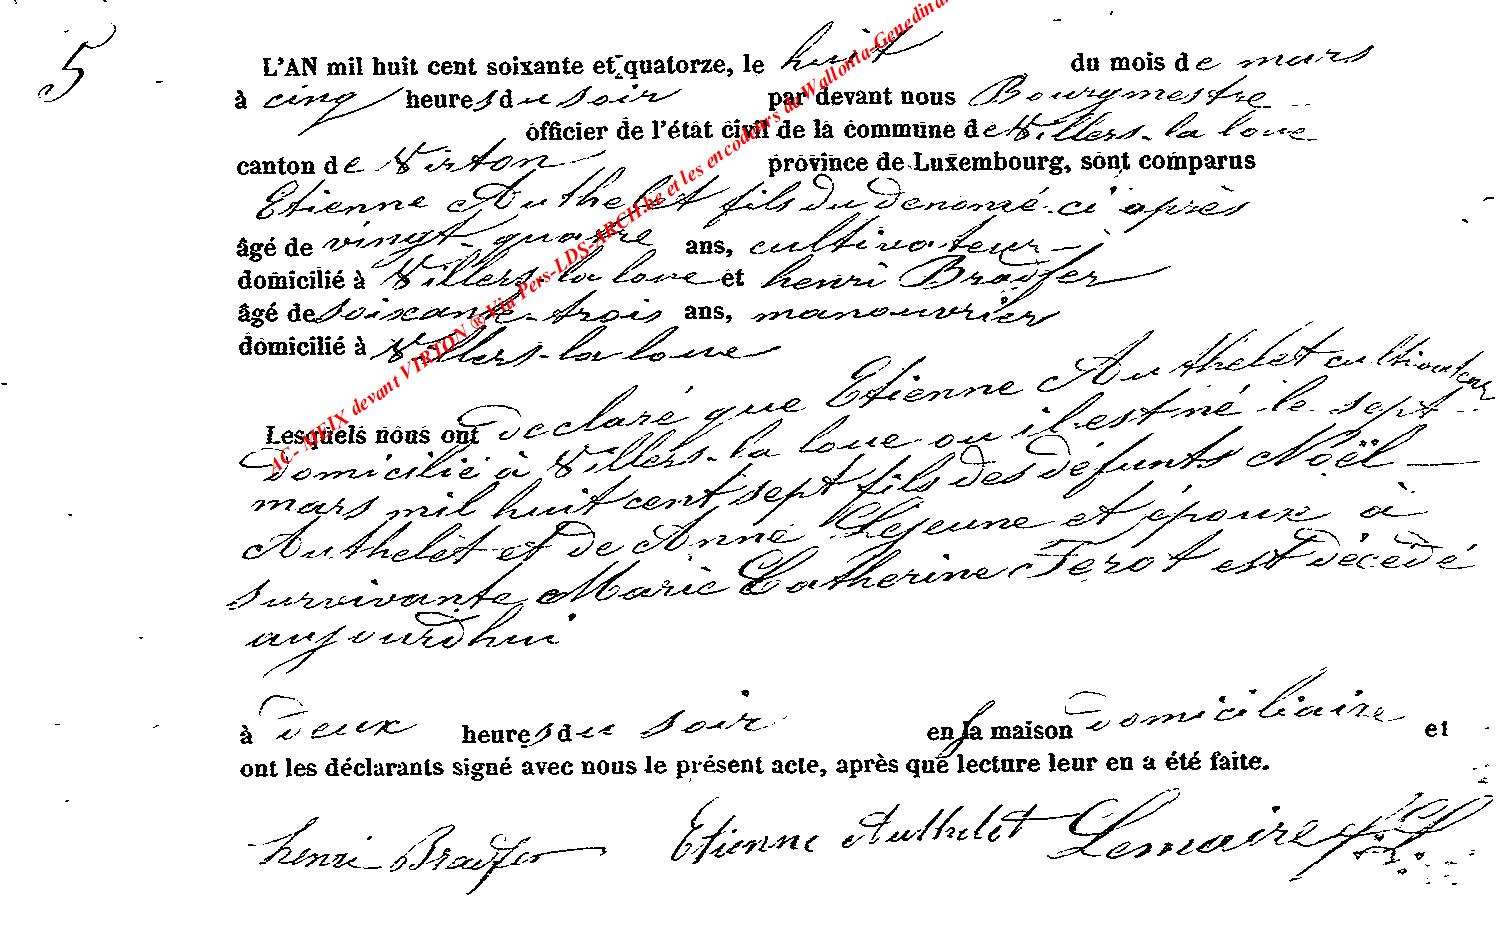 5
L'AN mil huit cent soixante et quatorze, le huit du mois de mars
à cinq heures du soir par devant nous Bourgmestre
officier de l'état civil de la commune de Villers-la loue
canton de Virton province de Luxembourg, sont comparus
Etienne Authelet fils du denomé ci après
âgé de vingt-quatre ans, cultivateur
domicilié à Villers-la loue et henri Bradfer
âgé de soixante-trois ans, manouvrier
domicilié à Villers-la loue
Lesquels nous ont déclaré que Etienne Authelet cultivateur
domicilié à Villers-la loue ou il est né le sept
mars mil huit cent sept fils des défunts Noël
Authelet et de Anne Lejeune et époux à
survivante Marie Catherine Ferot est décédé
aujourdhui
à deux heures du soir en la maison domiciliaire et
ont les déclarants signé avec nous le présent acte, après que lecture leur en a été faite.
henri Bradfer Etienne Authelet Lemaire
AC-MEIX devant VIRTON ® Via Pers-LDS-ARCH.be et les encodeurs de Wallonia-Genedinar